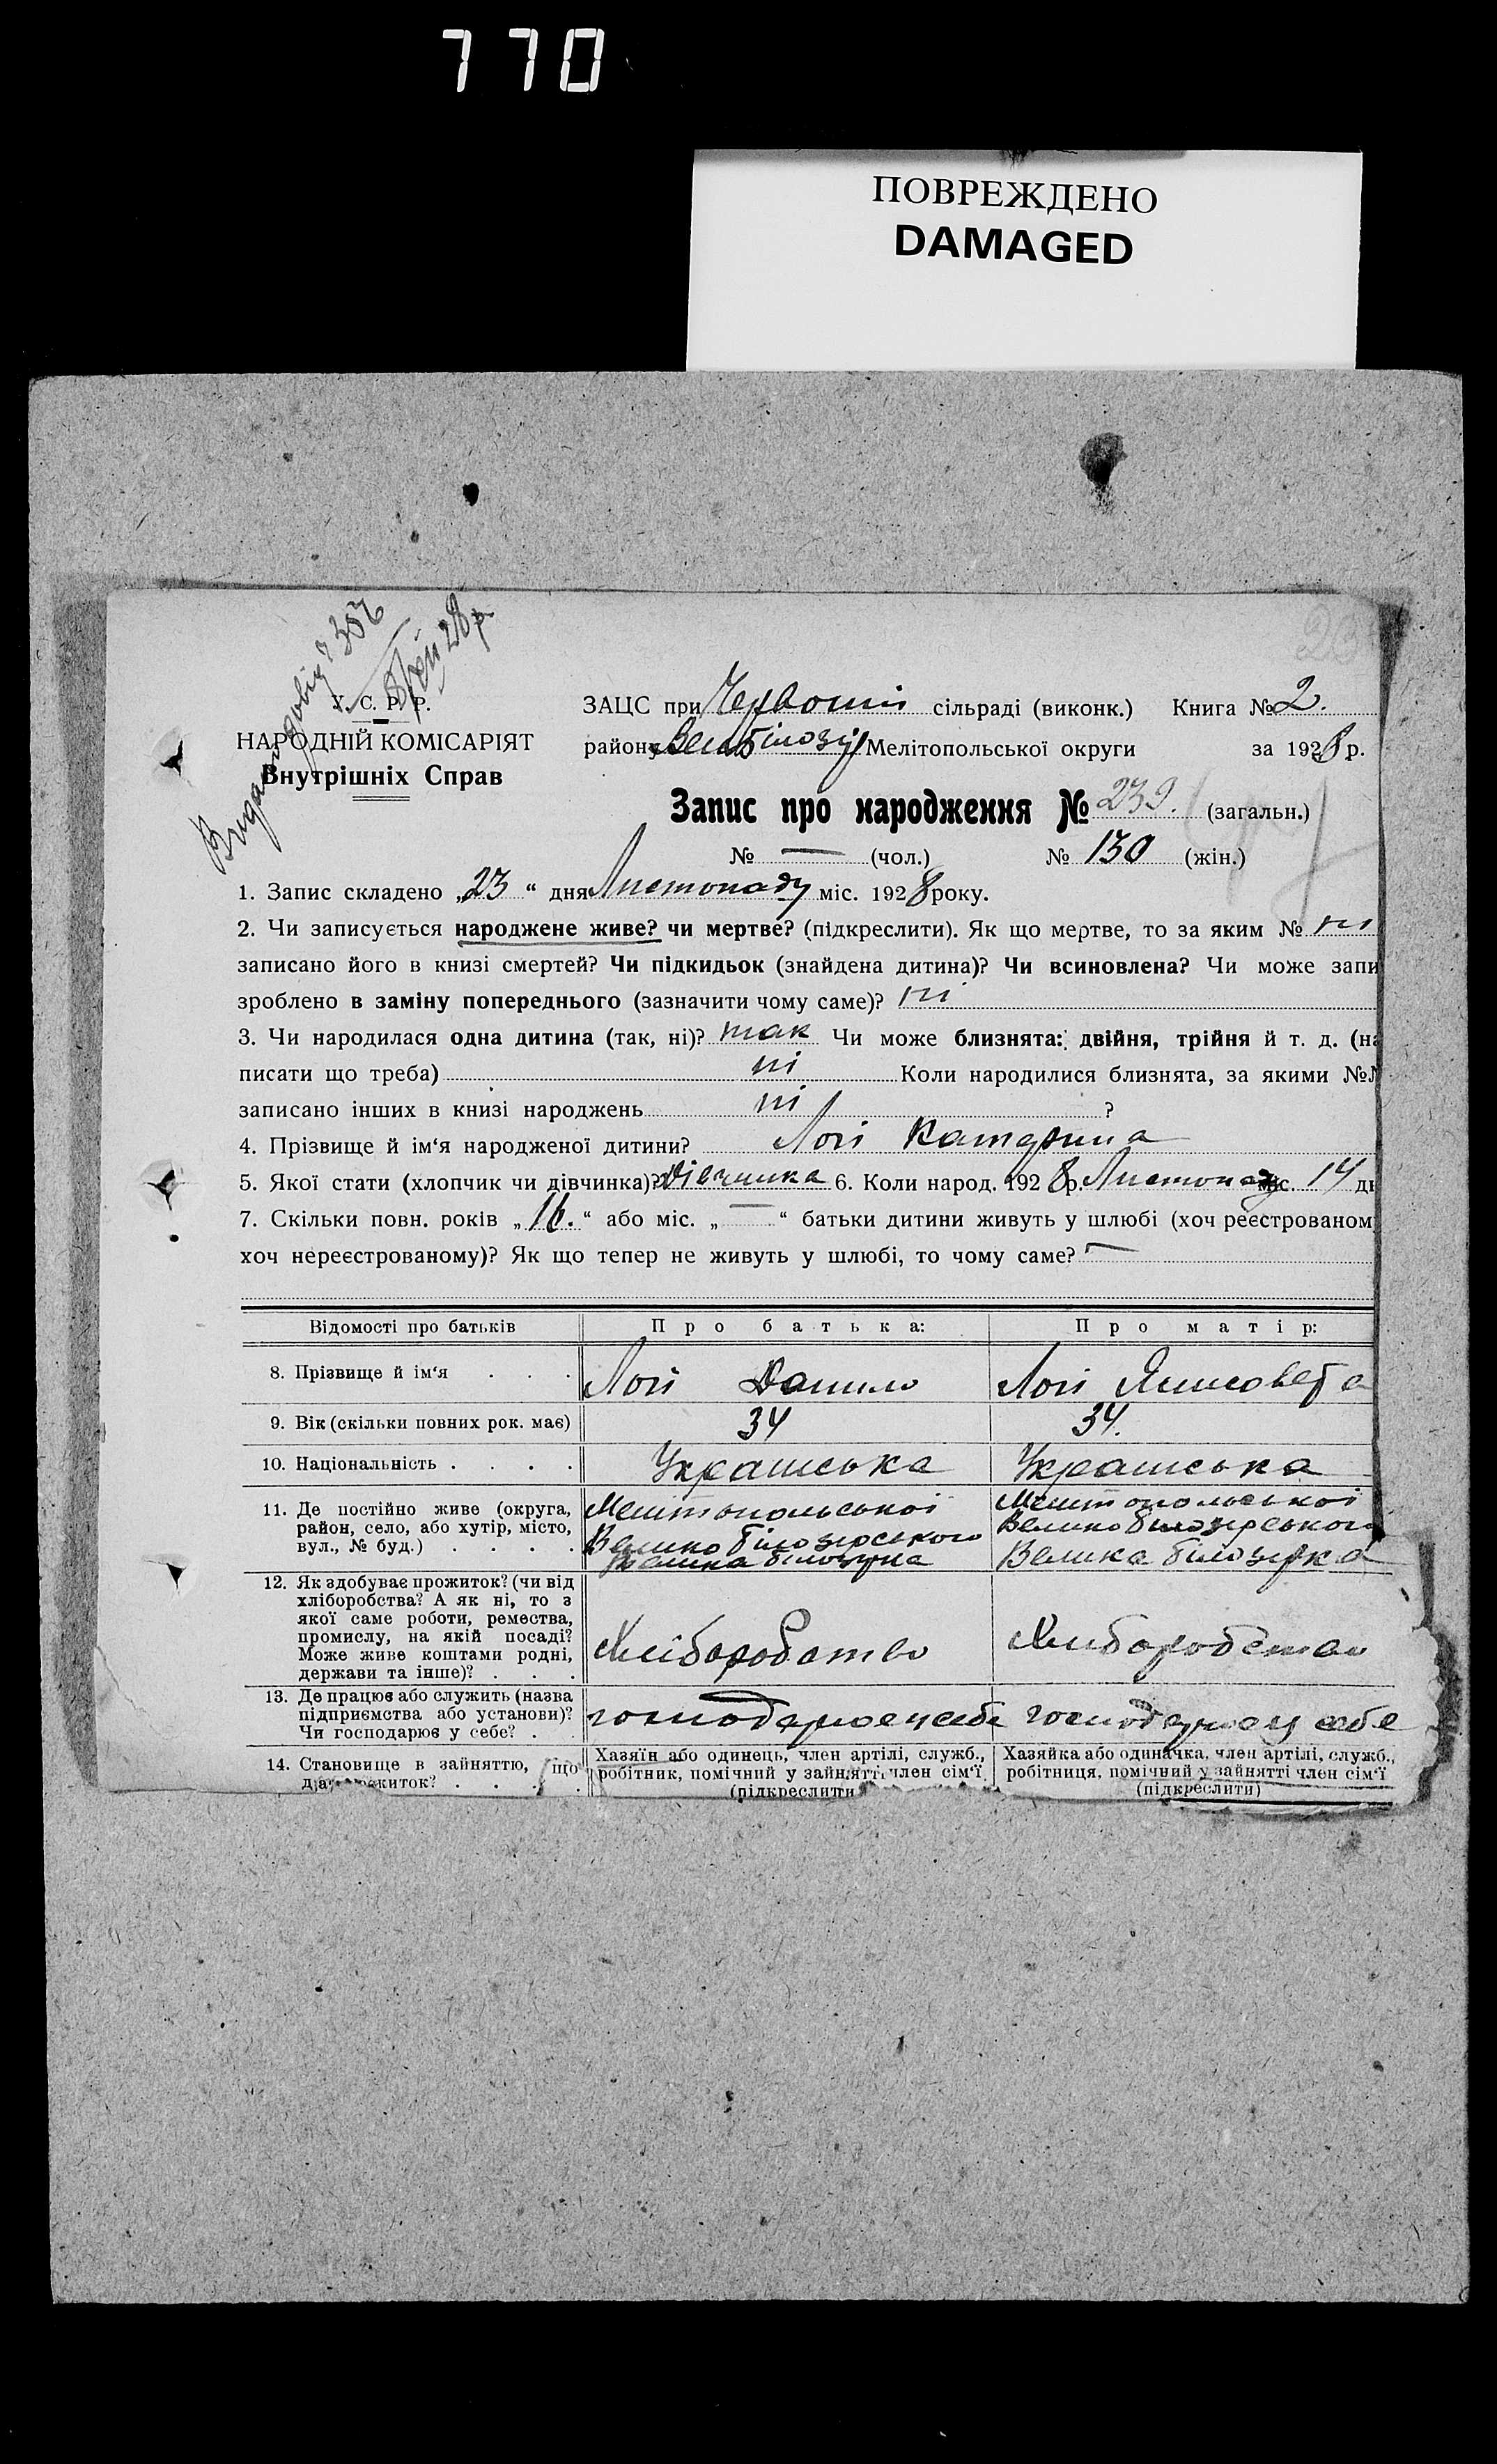 770
ПОВРЕЖДЕНО
DAMAGED
23
У. С. Р. Р.
НАРОДНІЙ КОМІСАРІЯТ
Внутрішніх Справ
ЗАЦС при сільраді (виконк.) Книга № 2.
району Мелітопольської округи за 1928 р.
Запис про народження № 239. (загальн.)
№ — (чол.) № 130 (жін.)
1. Запис складено „23“ дня Листопаду міс. 1928 року.
2. Чи записується народжене живе? чи мертве? (підкреслити). Як що мертве, то за яким № ні
записано його в книзі смертей? Чи підкидьок (знайдена дитина)? Чи всиновлена? Чи може запи
зроблено в заміну попереднього (зазначити чому саме)? ні
3. Чи народилася одна дитина (так, ні)? так Чи може близнята: двійня, трійня й т. д. (на
писати що треба) ні Коли народилися близнята, за якими №№
записано інших в книзі народжень ні ?
4. Прізвище й ім‘я народженої дитини? Катерина
5. Якої стати (хлопчик чи дівчинка)? Дівчинка 6. Коли народ. 1928 р. Листопаду міс. 14 дн
7. Скільки повн. років „16.“ або міс. „—“ батьки дитини живуть у шлюбі (хоч реєстрованом
хоч нереєстрованому)? Як що тепер не живуть у шлюбі, то чому саме? —
Відомості про батьків Про батька: Про матір:
8. Прізвище й ім‘я . . . Данило
9. Вік (скільки повних рок. має) 34 34.
10. Національність . . . . Українська Українська
11. Де постійно живе (округа, Мелітопольської Мелітопольської
район, село, або хутір, місто, Велико білозірського Велико білозірського
вул., № буд.) . . . . Велика білозірка Велика білозірка
12. Як здобуває прожиток? (чи від
хліборобства? А як ні, то з
якої саме роботи, ремества,
промислу, на якій посаді? Хліборобство Хліборобство
Може живе коштами родні,
держави та інше)? . . .
13. Де працює або служить (назва
підприємства або установи)? господарює у себе господарює у себе
Чи господарює у себе? .
14. Становище в зайняттю, що Хазяїн або одинець, член артілі, служб., Хазяйка або одиначка, член артілі, служб.,
робітник, помічний у зайнятті член сім‘ї робітниця, помічний у зайнятті член сім‘ї
(підкреслити (підкреслити)